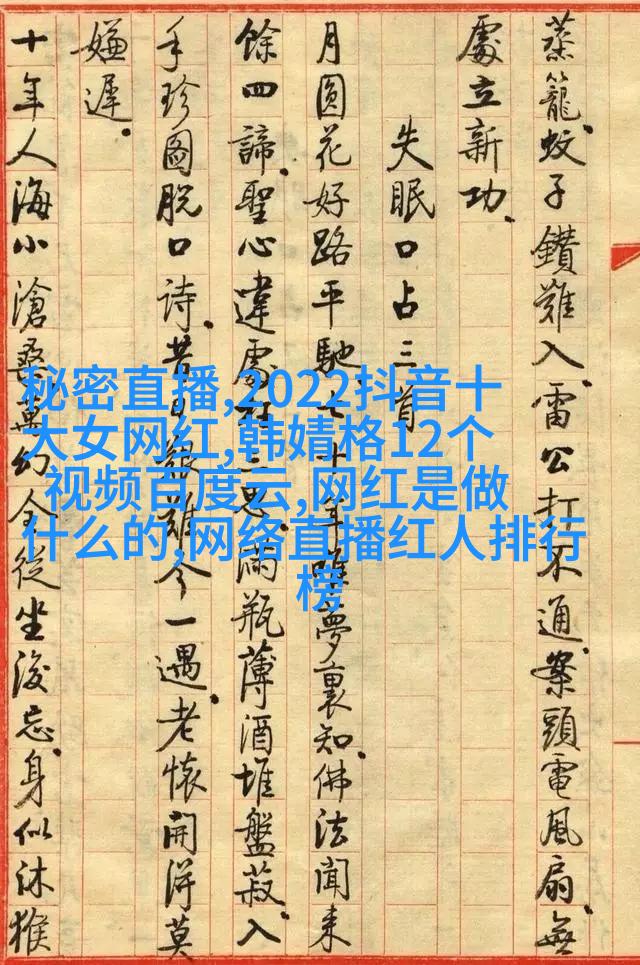 蒸籠。蚊子鑽難入雷公打不通。案頭電風扇無
處立新功。
失眠口占三首
月圓花好路平馳七十年夢裏知。佛法聞来
餘四諦。聖心違處三思。滿瓶薄酒堆盤菽。入
手珍圖脱口诗。昔艱難今一遇。老懷開得莫
嫌遲。
十年人海小滄桑萬幻全從坐後忘。身似沐猴
秘密直播,2022抖音十
大女网红,韩婧格12个
视频百度云,网红是做
什么的,网络直播红人排行
榜